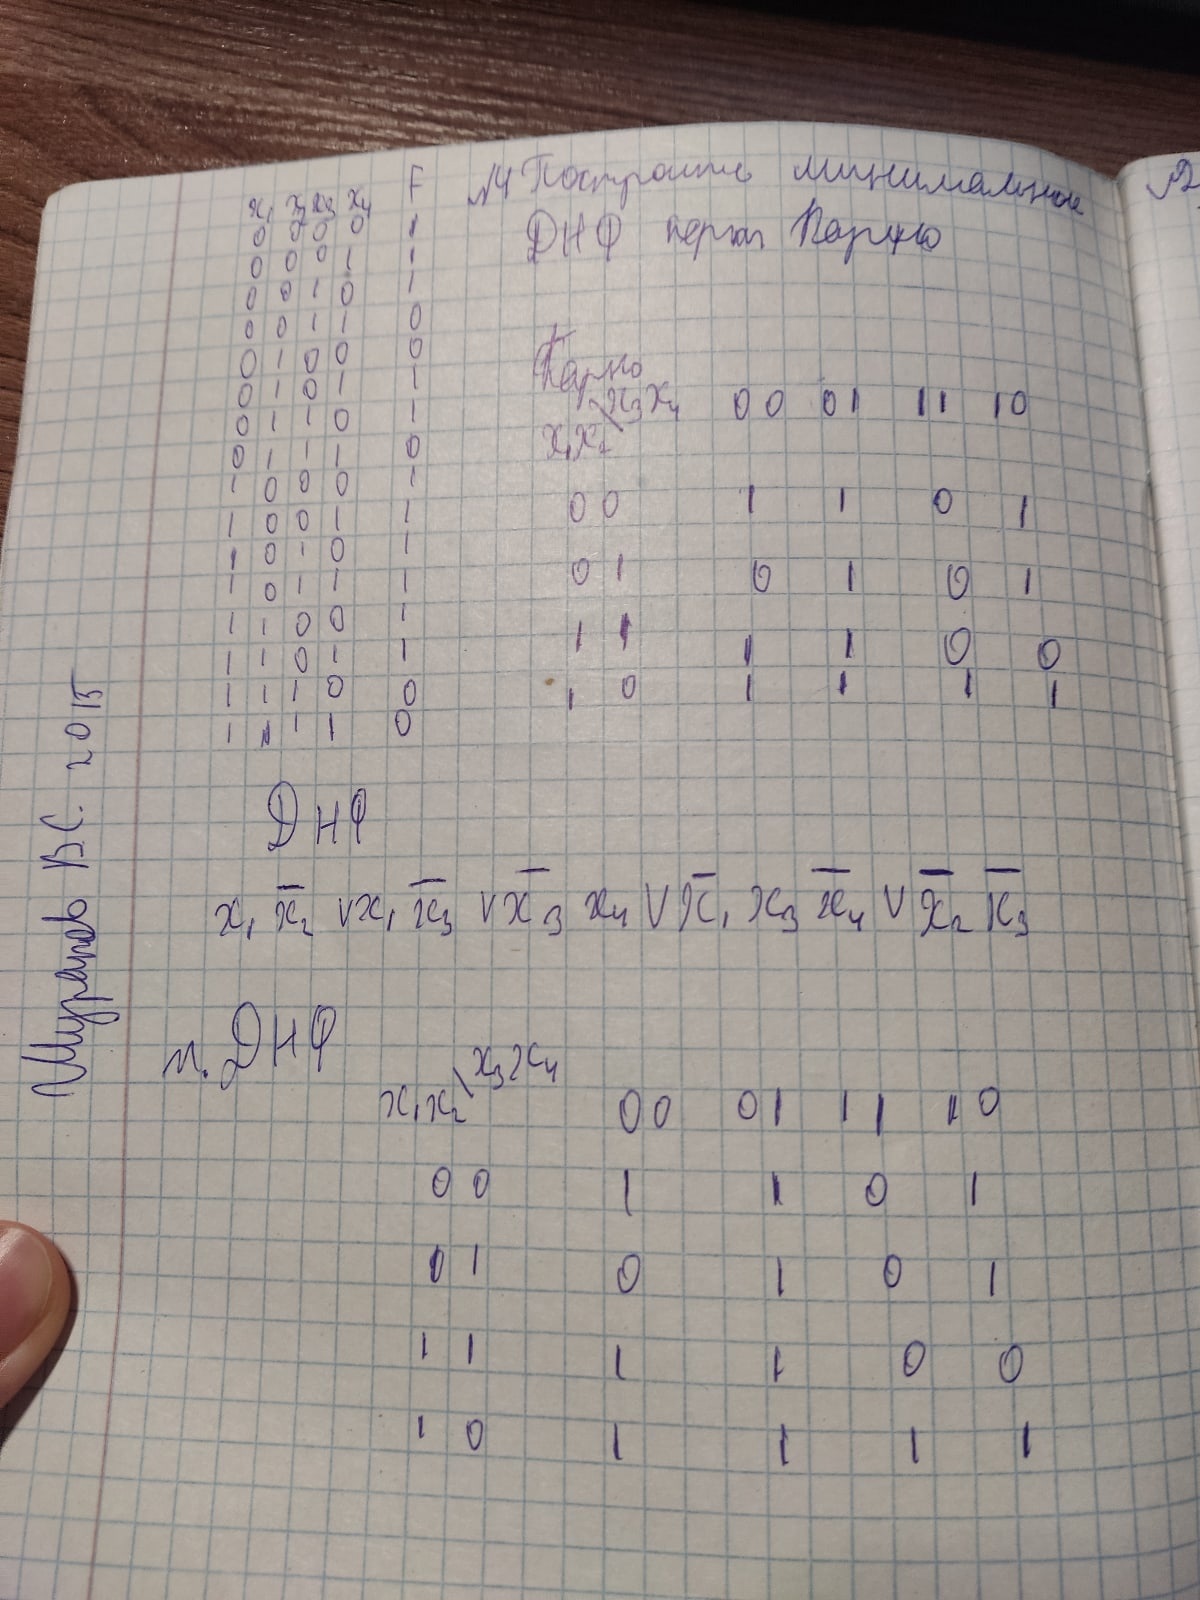 №4 Построить минимальное
ДНФ карта Карно
x₁ x₂ x₃ x₄ F
0 0 0 0 1
0 0 0 1 1
0 0 1 0 1
0 0 1 1 0
0 1 0 0 0
0 1 0 1 1
0 1 1 0 1
0 1 1 1 0
1 0 0 0 1
1 0 0 1 1
1 0 1 0 1
1 0 1 1 1
1 1 0 0 1
1 1 0 1 1
1 1 1 0 0
1 1 1 1 0
Карно
x₁x₂\x₃x₄ 00 01 11 10
00 1 1 0 1
01 0 1 0 1
11 1 1 0 0
10 1 1 1 1
ДНФ
x₁ x̄₂ ∨ x₁ x̄₃ ∨ x̄₃ x₄ ∨ x̄₁ x₃ x̄₄ ∨ x̄₂ x̄₃
м. ДНФ
x₁x₂\x₃x₄ 00 01 11 10
00 1 1 0 1
01 0 1 0 1
11 1 1 0 0
10 1 1 1 1
В.С. 2015